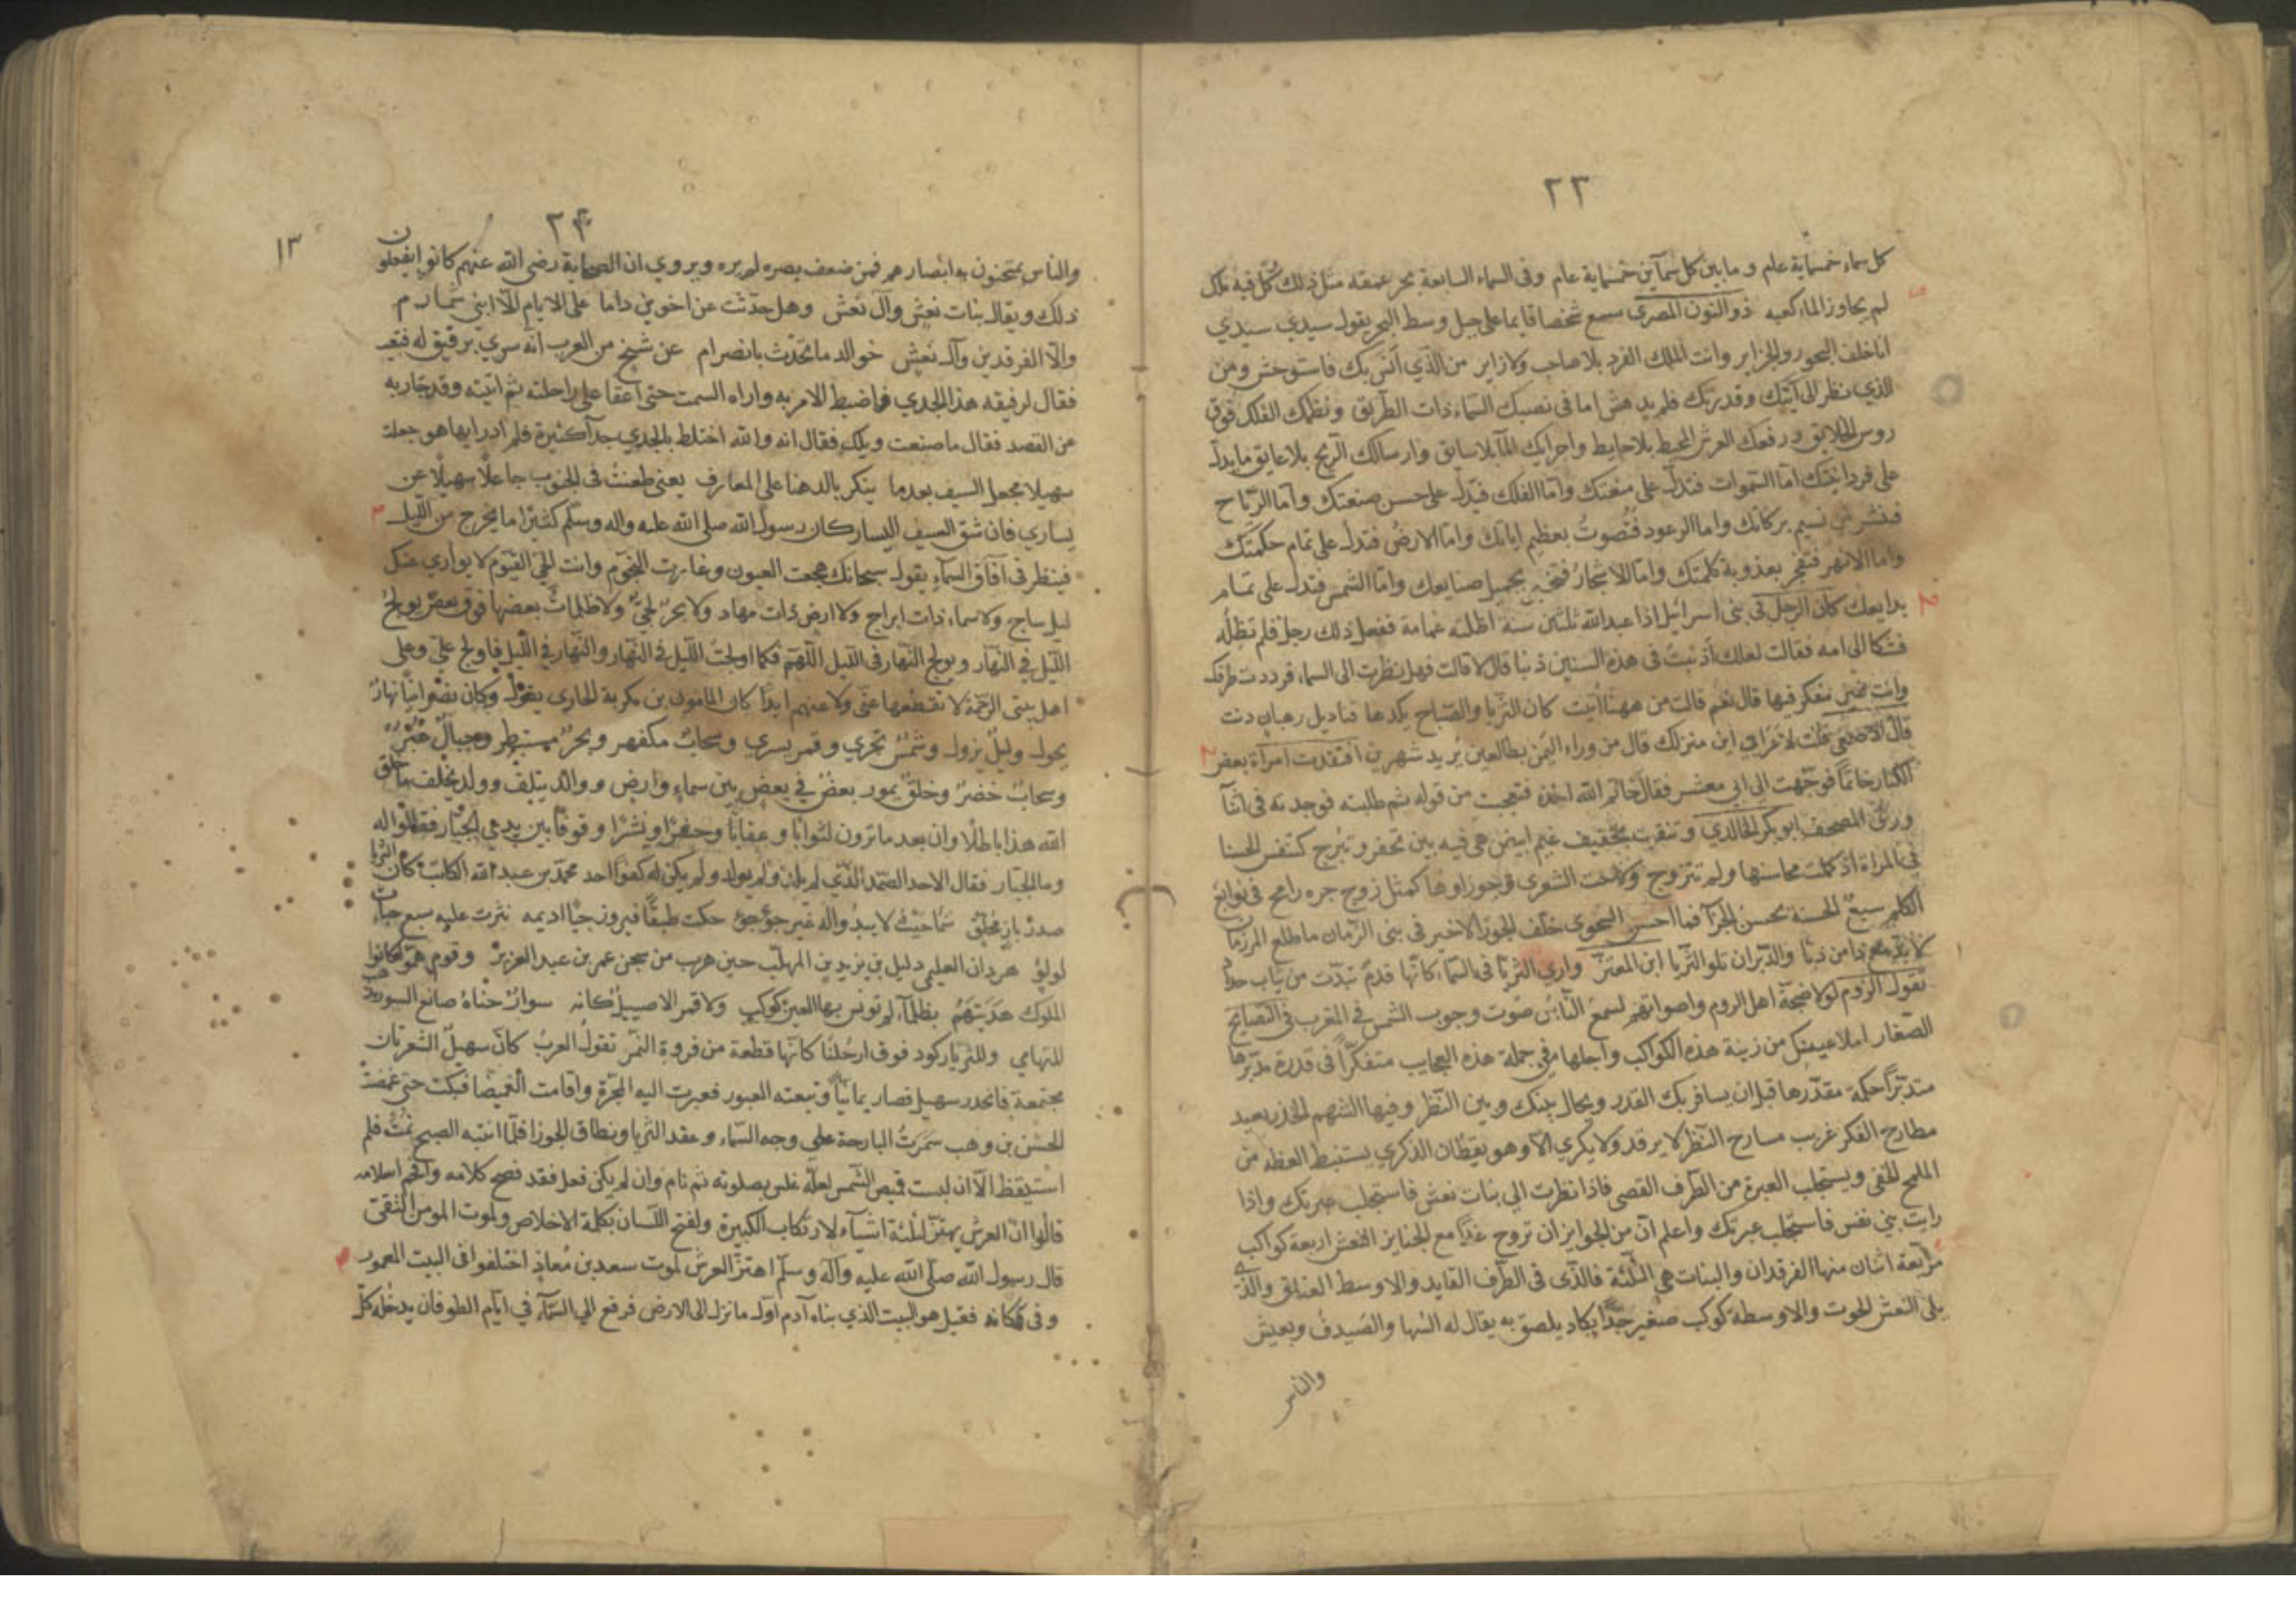 ٢٣
كل سماء خمسماية عام وما بين كل سمآين خمسماية عام وفى السماء السابعة بحر عمقه مثل ذلك كله فيه ملك
لم يجاوز الماء كعبه ذو النون المصرى سمع شخصا قايما على جبل وسط البحر يقول سيدي سيدي
انا خلف البحور والجزاير وانت الملك الفرد بلا حاجب ولا زاير من الذي انس بك فاستوحش ومن
الذي نظر الى آيتك وقدرتك فلم يدهش اما فى نصبك السماء ذات الطرايق ونظمك الفلك فوق
روس الخلايق ورفعك العرش المحيط بلا حايط واجرايك المآ بلا سايق وارسالك الريح بلا عايق ما يدل
على فردانيتك اما السموات فتدل على منعتك واما الفلك فيدل على حسن صنعتك واما الرياح
فتنشر من نسيم بركاتك واما الرعود فتصوت بعظيم اياتك واما الارض فتدل على تمام حكمتك
واما الانهر فتفجر بعذوبة كلمتك واما الاشجار فتخبر بجميل صنايعك واما الشمس فتدل على تمام
بدايعك كان الرجل فى بنى اسرائيل اذا عبد الله ثلثين سنة اظلته غمامة ففعل ذلك رجل فلم تظله
فشكا الى امه فقالت لعلك اذنبت فى هذه السنين ذنبا قال لا قالت فهل نظرت الى السماء فرددت طرفك
وانت غير متفكر فيها قال نعم قالت من ههنا اتيت كان الثريا والصباح يكدها قناديل رهبان دنت
قال الاصمعي قلت لاعرابي اين منزلك قال من وراء اليمن بطالعين يريد شهرين افتقدت امراة بعض
الكبار خاتما فوجهت الى ابي معشر فقال خاتم الله اخذه فتعجبت من قوله ثم طلبته فوجدته فى اثنآ
ورق المصحف ابو بكر الخالدي وتنقبت بخفيف غيم ابيض هى فيه بين تخفر وتبرج كتنفس الحسنا
في المراة اذ كملت محاسنها ولم تتزوج ولاحت الشعرى وجوزاوها كمثل زوج جره رامح فى نوابغ
الكلم سبع الحسنة تحسن الجزآ فما احسن النحوى خلف الجوزآ الاخر فى بنى الزمان ما طلع المرزمان
والدبران تلو الثريا ابن المعتز وارى الثريا فى السماء كانها قدم تبدت من ثياب حداد
تقول الروم لولا ضجة اهل الروم واصواتهم لسمع الناس صوت وجوب الشمس في المغرب فى النصايح
الصغار املا عينيك من زينة هذه الكواكب واجلها في جملة هذه العجايب متفكرا فى قدرة مدبرها
متدبرا حكمة مقدرها قبل ان يسافر بك القدر ويحال بينك وبين النظر وفيها الشهم الحذر بعيد
مطارح الفكر غريب مسارح النظر لا يرقد ولا يكري الا وهو يقظان الذكري يستنبط العظة من
الملمح الخفي ويستجلب العبرة من الطرف القصى فاذا نظرت الي بنات نعش فاستجلب عبرتك واذا
رايت بني نعش فاستحلب عبرتك واعلم ان من الجوايز ان تروح غدا مع الجنايز النعش اربعة كواكب
مربعة اثنان منها الفرقدان والبنات هي الثلثة فالذى فى الطرف القايد والاوسط العناق والذي
يلى النعش الحوت والاوسطة كوكب صغير جدا يكاد يلصق به يقال له السها والصيدق وبعيش
والناس
٢٤
١٣
والناس يمتحنون به ابصارهم فمن ضعف بصره لم يره ويروي ان الصحابة رضى الله عنهم كانوا يفعلون
ذلك ويقال بنات نعش وآل نعش وهل حدثت عن اخوين داما على الايام الا ابنى شمام
والا الفرقدين وآل نعش خوالد ما تحدث بانصرام عن شيخ من العرب انه سري برفيق له فتعب
فقال لرفيقه هذا الجدي فاضبط الامر به واراه السمت حتى اعقا على راحلته ثم اتيته وقد جار به
عن القصد فقال ما صنعت ويلك فقال انه والله اختلط بالجدي جدآ كثيرة فلم ادر ايها هو جعلت
سهيلا مجعل السيف بعدما ينكر بالدهنا على المعارف يعنى طعنت فى الجنوب جاعلا سهيلا عن
يساري فان شق السيف اليسار كان رسول الله صلى الله عليه واله وسلم كثيرا ما يخرج من الليل
فينظر فى آفاق السماء يقول سبحانك هجعت العيون وغارت النجوم وانت الحي القيوم لا يواري عنك
ليل ساج ولا سماء ذات ابراج ولا ارض ذات مهاد ولا بحر لجي ولا ظلمات بعضها فوق بعض يولج
الليل في النهار ويولج النهار فى الليل اللهم فكما اولجت الليل في النهار والنهار في الليل فاولج علي وعلى
اهل بيتى الرحمة لا تقطعها عنى ولا عنهم ابدا كان المامون بن مكربة الحارى يقول وكان نصرانيا نهار
يحول وليل يزول وشمس تجري وقمر يسري وسحاب مكفهر وبحر مستبطر وجبال غبر
وسحاب خضر وخلق يمور بعض في بعض بين سماء وارض ووالد يتلف وولد يخلف ما خلق
الله هذا باطلا وان بعد ما ترون لثوابا وعقابا وحشرا ونشرا وقوفا بين يدي الجبار فقالوا له
وما الجبار فقال الاحد الصمد الذي لم يلد ولم يولد ولم يكن له كفوا احد محمد بن عبد الله الكاتب كان الثريا
صدر باز محلق سما حيث لا يبدو اله غير جؤجؤ حكت طبقا فيروزجيا اديمه نثرت عليه سبع حبات
لولؤ هردان العليمى دليل بن يزيد بن المهلب حين هرب من سجن عمر بن عبد العزيز وقوم هم كانوا
الملوك هديتهم بظلمآء لم تونس بها العين كوكب ولا قمر الا صييلا كانه سوار حناه صانع السور مذهب
للتهامي وللثريا ركود فوق ارحلنا كانها قطعة من فروة النمر تقول العرب كان سهيل الشعريان
مجتمعة فانحدر سهيل فصار يمانيا وتبعته العبور فعبرت اليه المجرة واقامت الغميصا فبكت حتى غمصت
الحسن بن وهب سمرت البارحة على وجه السماء وعقد الثريا ونطاق الجوزا فلما انتبه الصبح نمت فلم
استيقظ الا ان لبست قميص الشمس لعله غلس بصلوته ثم نام وان لم يكن فعل فقد فصح كلامه واقحم اسلامه
قالوا ان العرش يهتز لثلثة اشيآء لارتكاب الكبيرة ولفتح اللسان بكلمة الاخلاص ولموت المومن التقى
قال رسول الله صلى الله عليه وآله وسلم اهتز العرش لموت سعد بن معاذ اختلفوا فى البيت المعمور
وفى مكانه فقيل هو البيت الذي بناه آدم اول ما نزل الى الارض فرفع الي السمآء في ايام الطوفان يدخله كل